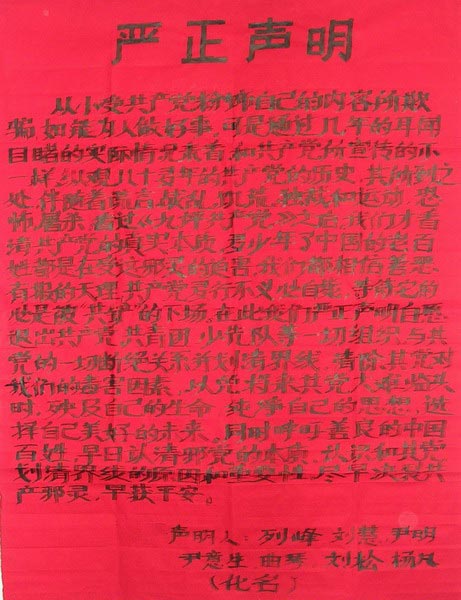 严正声明
从小受共产党粉饰自己的内容所欺
骗,如能为人做好事,可是通过几年的耳闻
目睹的实际情况来看,和共产党所宣传的不
一样,纵观几十多年的共产党的历史,其所到之
处,伴随着谎言、战乱、饥荒、独裁和运动、恐
怖、屠杀,看过《九评共产党》之后,我们才看
清共产党的真实本质,多少年了中国的老百
姓都是在受这邪灵的迫害,我们都相信善恶
有报的天理,共产党多行不义必自毙,等待它的
必是被“共铲”的下场,在此我们严正声明自愿
退出共产党、共青团、少先队等一切组织,与其
党的一切断绝关系并划清界线,清除其党对
我们的毒害因素,以免打永共党大难临其
时,殃及自己的生命,纯净自己的思想,选
择自己美好的未来。同时呼吁善良的中国
百姓,早日认清邪党的本质,认识和其党
划清界线的原因和重要性,尽早决裂共
产邪灵,早获平安。
声明人:列峰 刘慧 尹明
尹意生 曲琴 刘松 杨凡
(化名)